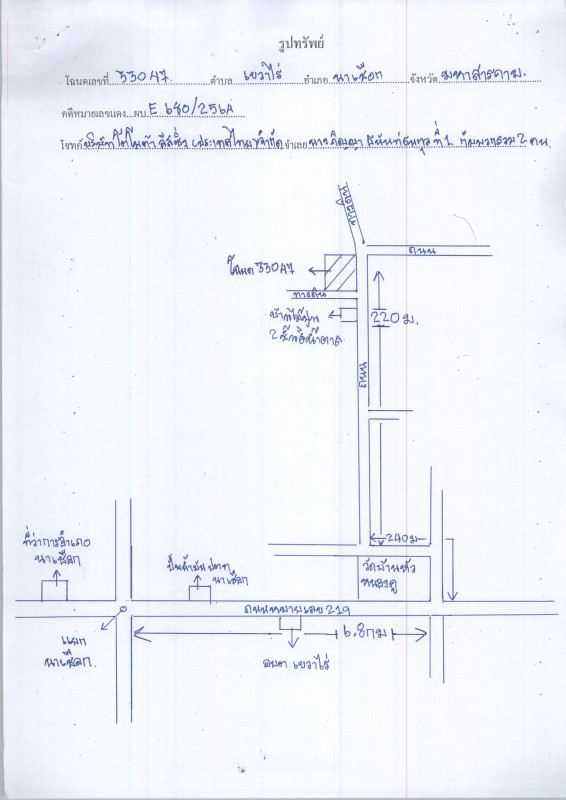 รูปทรัพย์
โฉนดเลขที่ 33047 ตำบล เขวาไร่ อำเภอ นาเชือก จังหวัด มหาสารคาม
คดีหมายเลขแดง ผบ.E 680/256
โจทก์ บริษัท โตโยต้า ลีสซิ่ง (ประเทศไทย) จำกัด จำเลย นาง ที่ 1 กับพวกรวม 2 คน
ทางดิน
ถนน
โฉนด 33047
ทางดิน
บ้านไม้ปูน
2 ชั้น
220 ม.
ถนน
240 ม
ที่ว่าการอำเภอ
นาเชือก
ปั๊มน้ำมัน ปตท
นาเชือก
วัดบ้านหัว
หนองคู
ถนนหมายเลข 219
6.8 กม
แยก
นาเชือก
อบต เขวาไร่